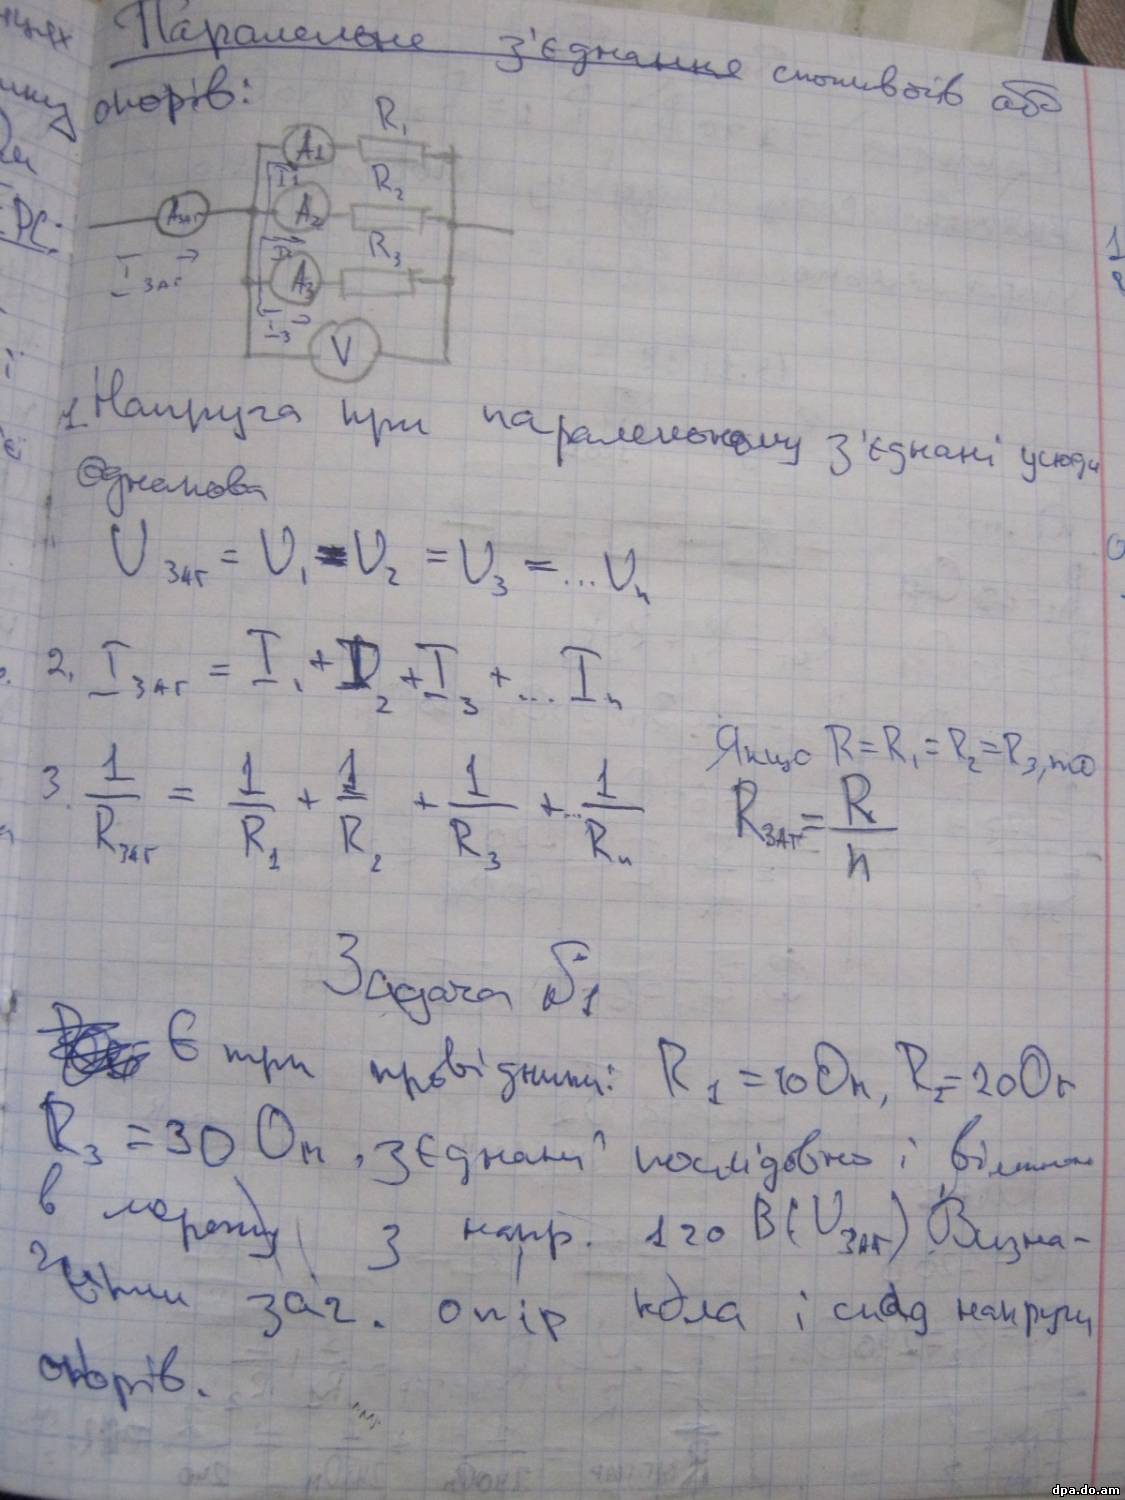 Паралельне з'єднання споживачів або
опорів:
A1 R1
I1
Aзаг A2 R2
Iзаг I2 A3 R3
I3
V
1. Напруга при паралельному з'єднані усюди
однакова
Uзаг = U1 = U2 = U3 = ... Un
2. Iзаг = I1 + I2 + I3 + ... In
Якщо R = R1 = R2 = R3, то
3. 1/Rзаг = 1/R1 + 1/R2 + 1/R3 + ... 1/Rn
Rзаг = R/n
Задача №1
Є три провідники: R1 = 10 Ом, R2 = 20 Ом
R3 = 30 Ом, з'єднані послідовно і
в з напр. 120 В (Uзаг) Визна-
чити заг. опір кола і спад напруги
опорів.
ЕРС:
dpa.do.am